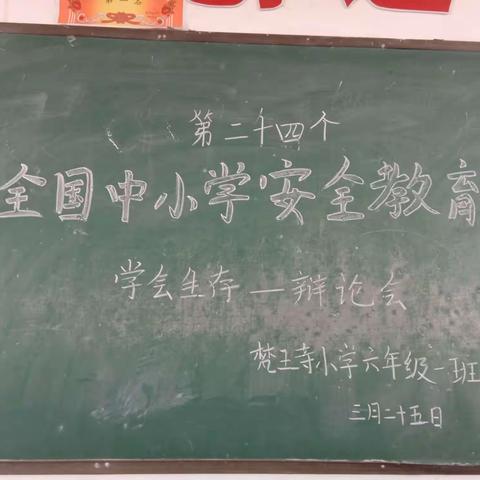 第一名
第二十四个
全国中小学安全教育
学会生存—辩论会
梵王寺小学六年级一班
三月二十五日